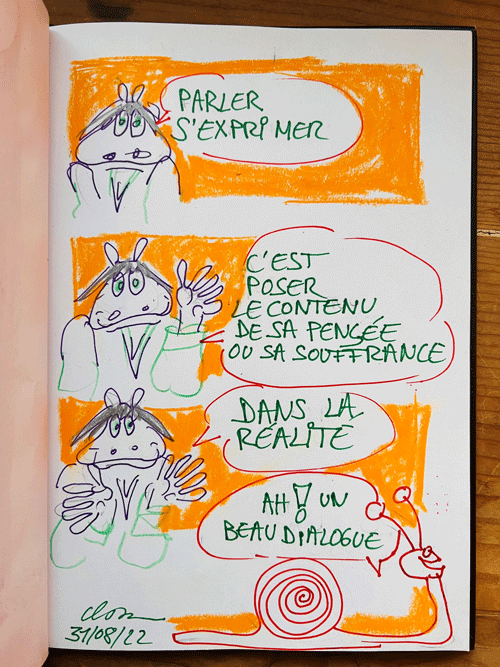 PARLER
S'EXPRIMER
C'EST
POSER
LE CONTENU
DE SA PENSÉE
OU SA SOUFFRANCE
DANS LA
RÉALITÉ
AH! UN
BEAU DIALOGUE
31/08/22